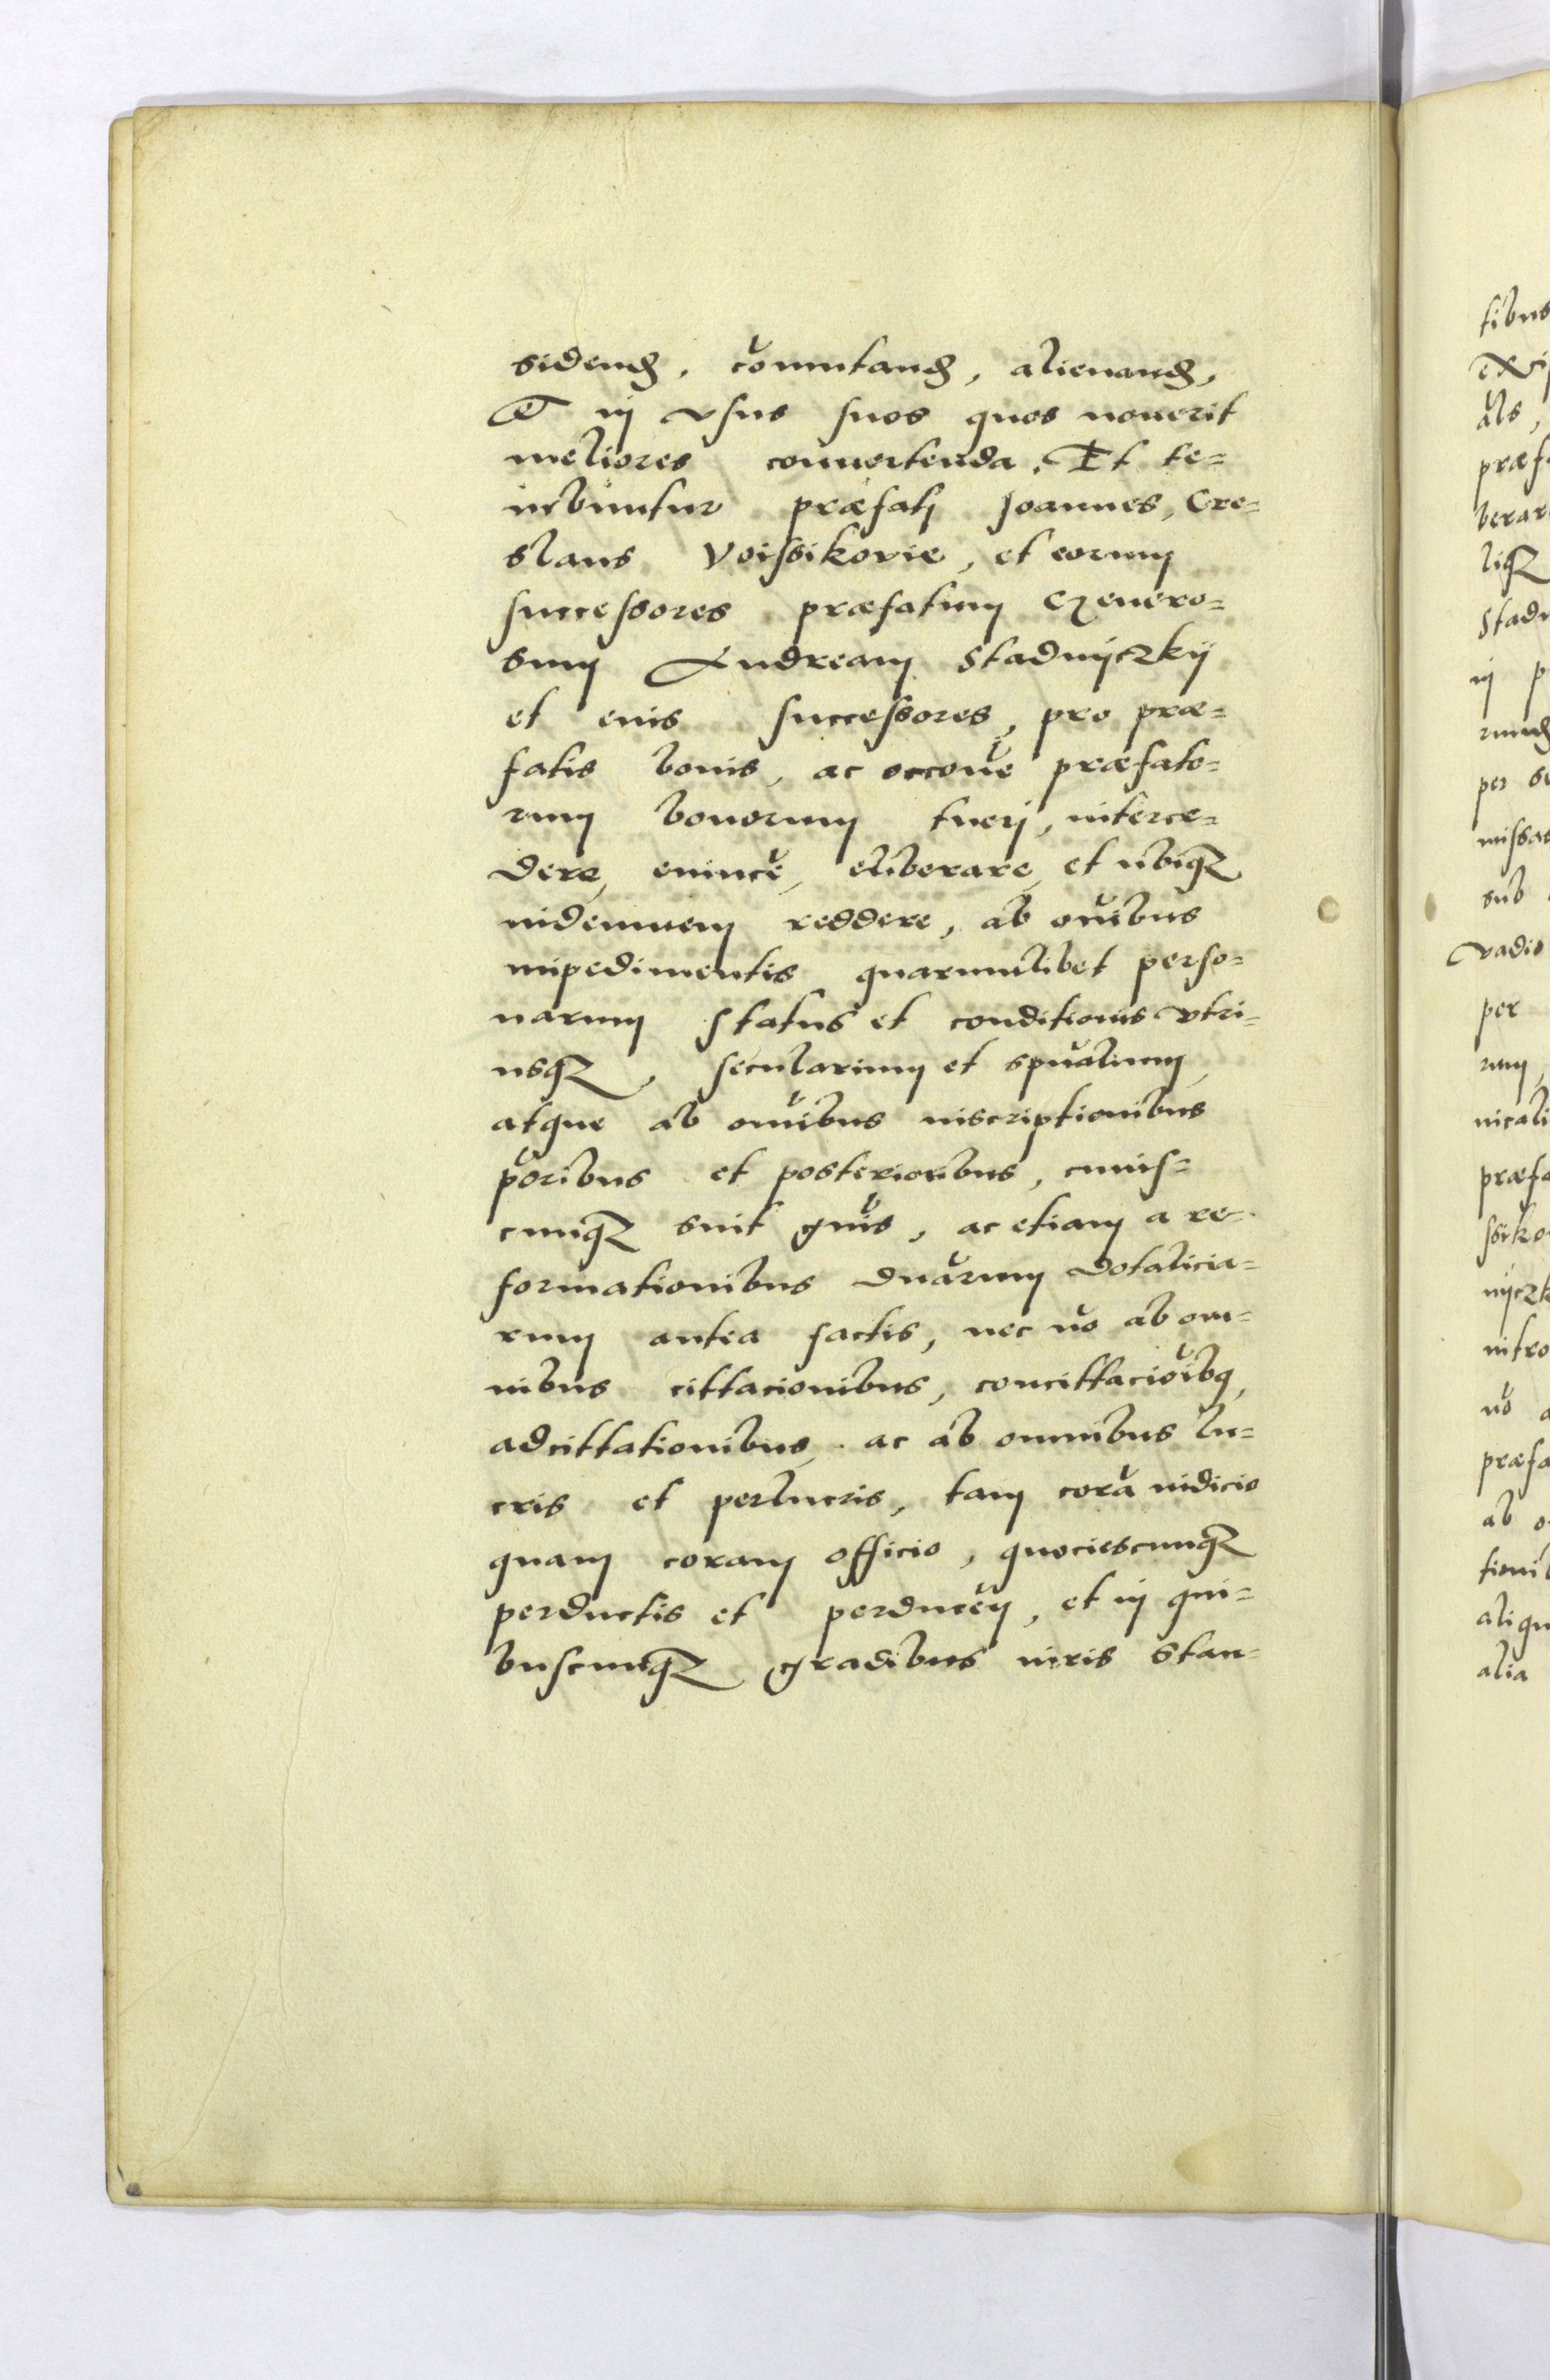 sidend, co̅mutand, alienand,
Et in usus suos quos nouerit
meliores conuertenda. Et te=
nebuntur præfati Joannes, Cre=
slaus Voissikovie, et eorum
successores præfatum Genero=
sum Andream Stadnyczky
et eius successores, pro præ=
fatis bonis, ac occ̅one præfato=
rum bonorum tueri, interce=
dere, euince̅, eliberare, et ubiq
indemnem reddere, ab o̅nibus
impedimentis quarumlibet perso=
narum status et conditionis utri=
usq, secularium et sp̅ualium,
atque ab o̅nibus inscriptionibus
p̅oribus et posterioribus, cuius=
cunq sint gn̅is, ac etiam a re=
formationibus dn̅arum dotalicia=
rum antea factis, nec no̅ ab om=
nibus cittacionibus, concittacio̅ibq,
adcittationibus, ac ab omnibus lu=
cris et perlucris, tam cora̅ iudicio
quam coram officio, quociescunq
perductis et perduce̅n, et in qui=
buscunq gradibus iuris stan=
tibus
a̅ls,
præf
berar
liq
Stadn
in p
per
missas
sub
vadio
per
rum,
præfa
ssiko
nyczk
intro
no̅ a
præfa
ab o
tionib
aliqu
alia